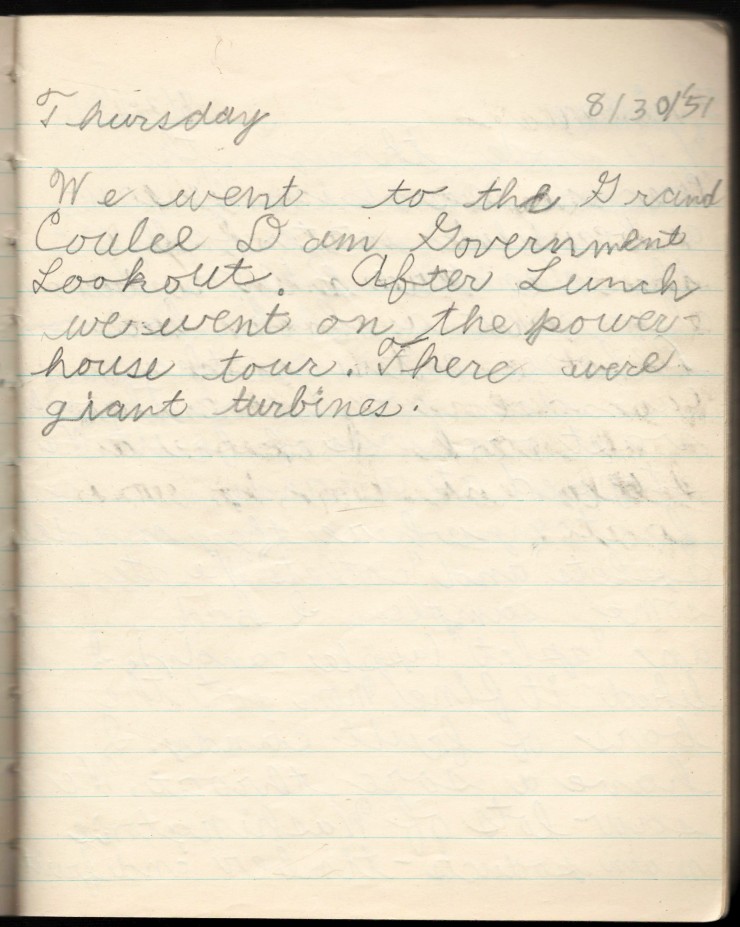 Thursday 8/30/'51
We went to the Grand
Coulee Dam Government
Lookout. After Lunch
we went on the power-
house tour. There were
giant turbines.